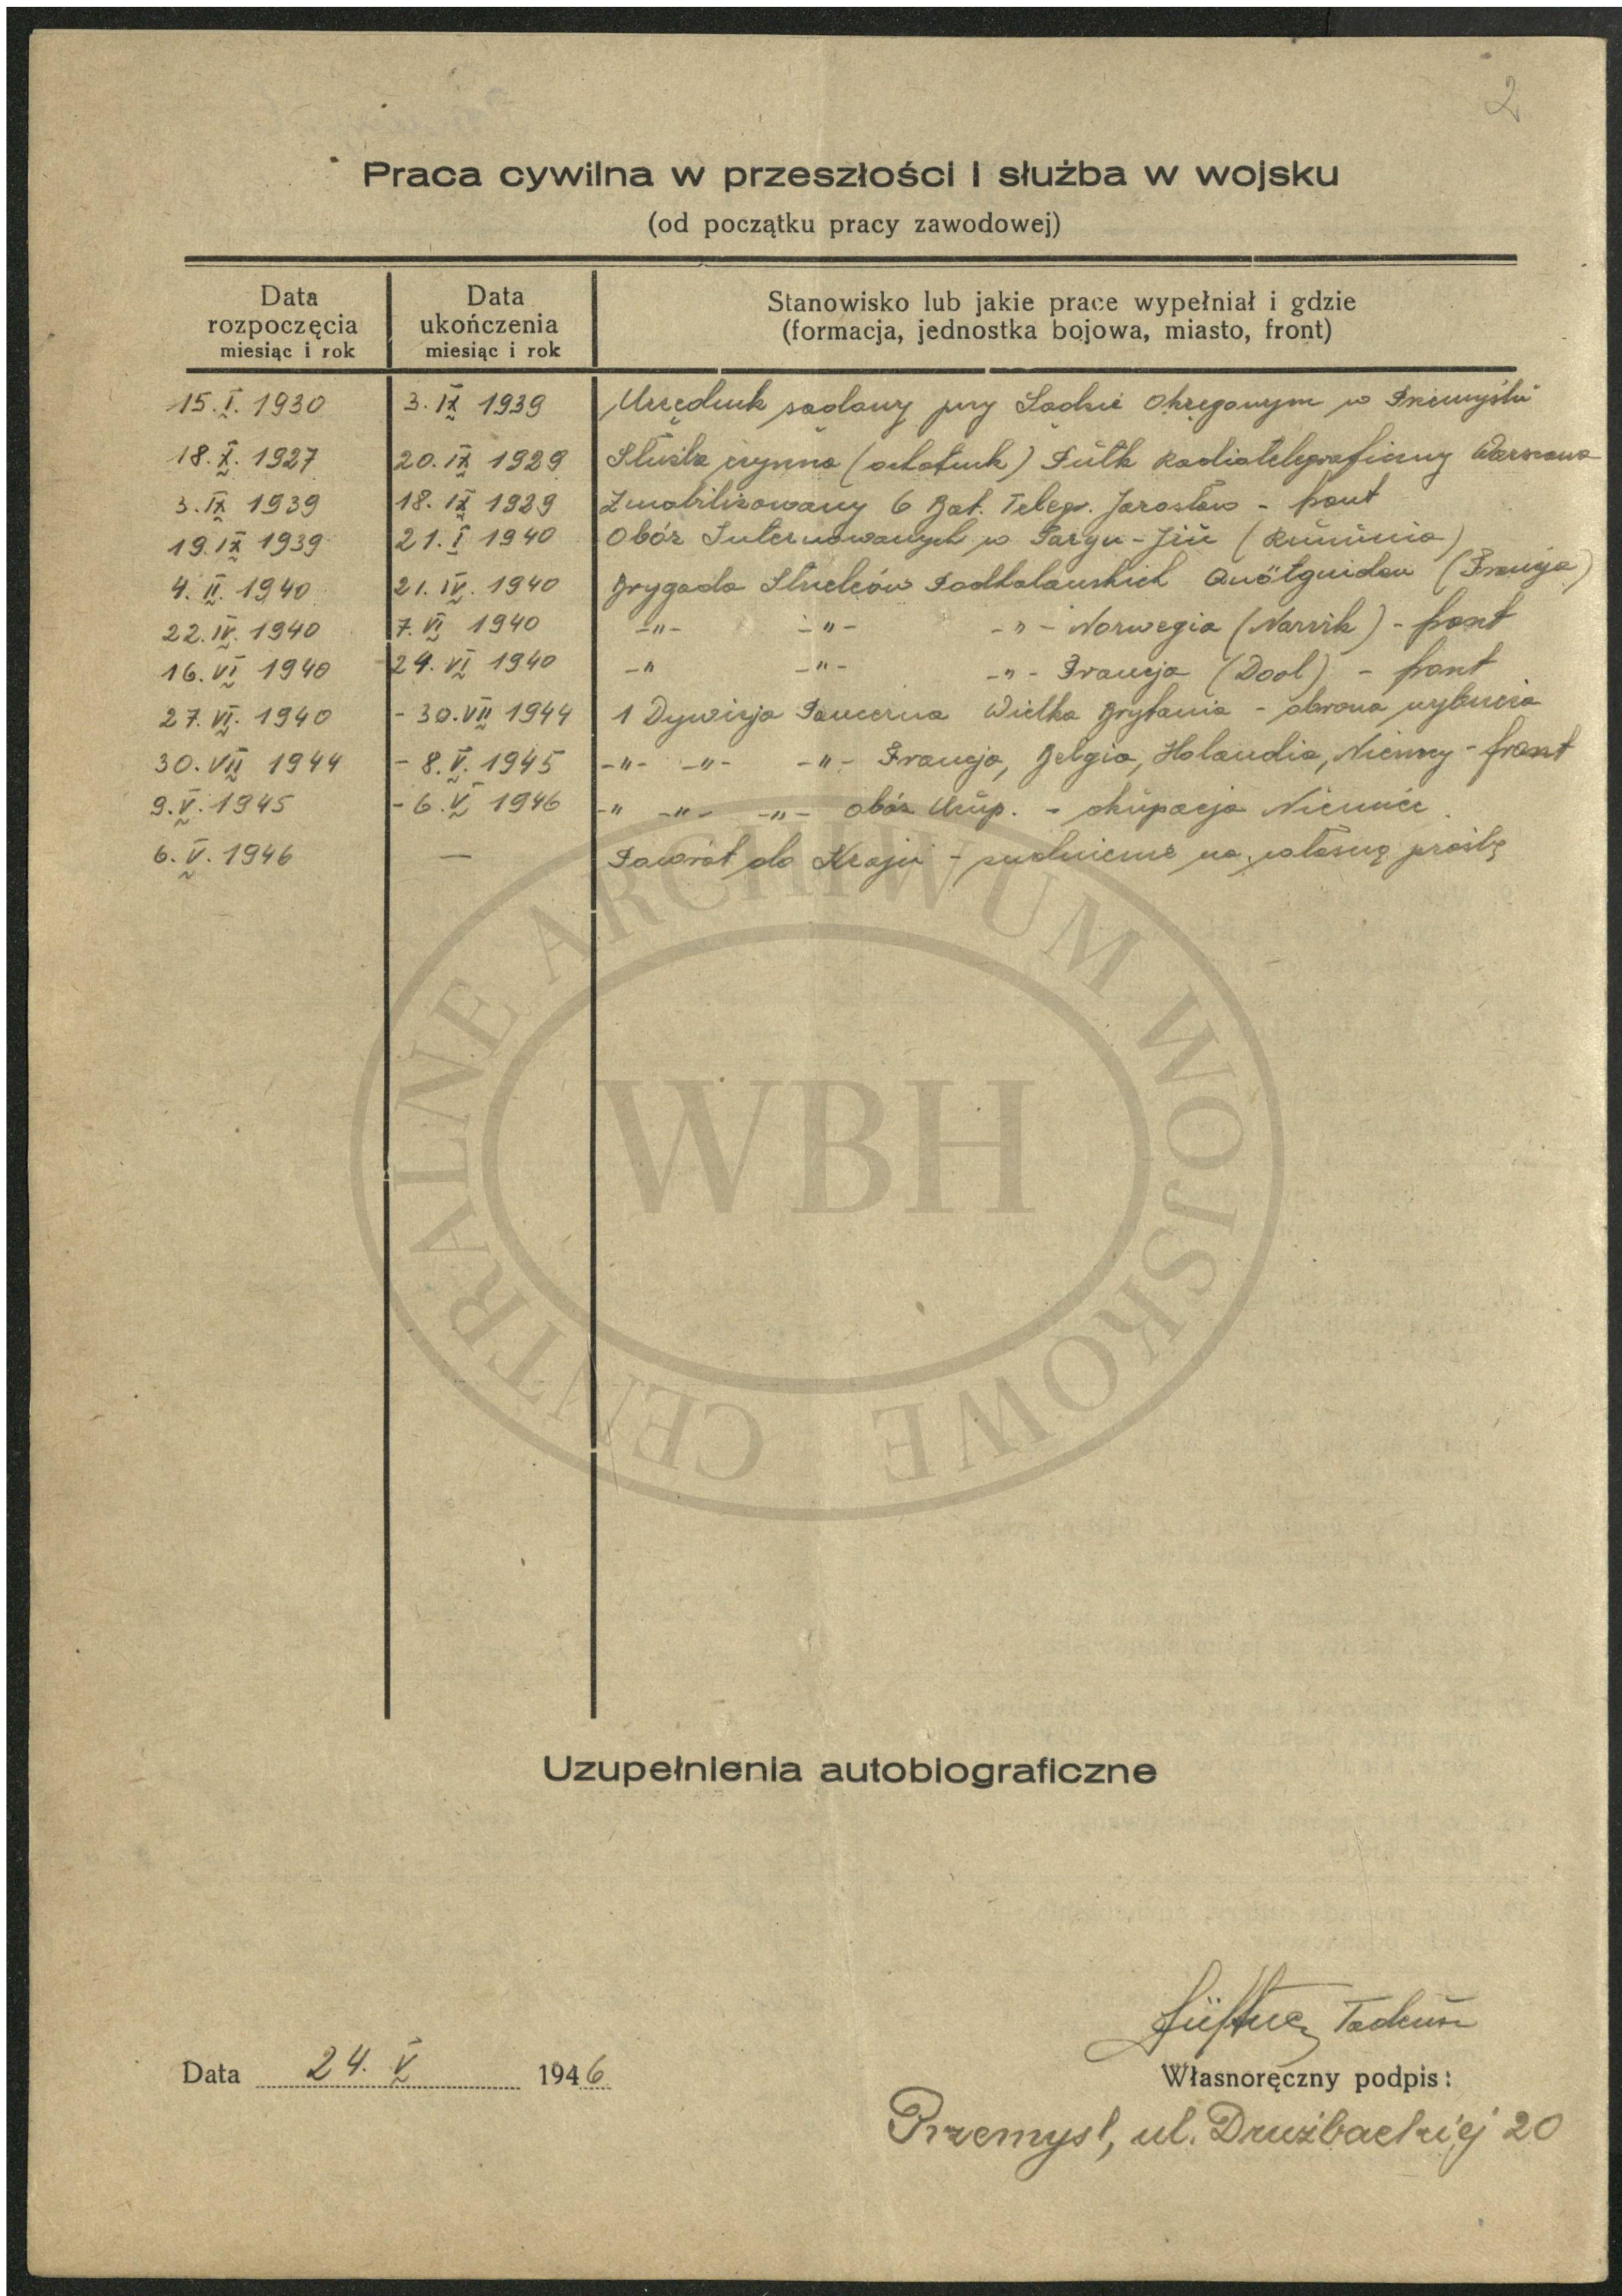 2
Praca cywilna w przeszłości i służba w wojsku
(od początku pracy zawodowej)
Data rozpoczęcia miesiąc i rok
Data ukończenia miesiąc i rok
Stanowisko lub jakie prace wypełniał i gdzie (formacja, jednostka bojowa, miasto, front)
15. I. 1930 3. IX 1939 Urzędnik sądowy przy Sądzie Okręgowym w Przemyślu
18. X. 1927 20. IX 1929 Służba czynna (ochotnik) Pułk Radiotelegraficzny Warszawa
3. IX 1939 18. IX 1939 Zmobilizowany 6 Bat. Telegr. Jarosław - front
19. IX 1939 21. I 1940 Obóz Internowanych w Targu-Jiu (Rumunia)
4. II. 1940 21. IV. 1940 Brygada Strzelców Podhalańskich Quötguidan (Francja)
22. IV. 1940 7. VI 1940 -"- -"- -"- Norwegia (Narvik) - front
16. VI 1940 24. VI 1940 -"- -"- -"- Francja (Dool) - front
27. VI. 1940 - 30. VII 1944 1 Dywizja Pancerna Wielka Brytania - obrona wybrzeża
30. VII 1944 - 8. V. 1945 -"- -"- -"- Francja, Belgia, Holandia, Niemcy - front
9. V. 1945 - 6. V 1946 -"- -"- -"- obóz - okupacja Niemiec
6. V. 1946 — Powrót do Kraju - zwolnienie na własną prośbę
CENTRALNE ARCHIWUM WOJSKOWE
WBH
Uzupełnienia autobiograficzne
Tadeusz
Data 24. V 1946
Własnoręczny podpis:
Przemysl, ul. Drużbackiej 20